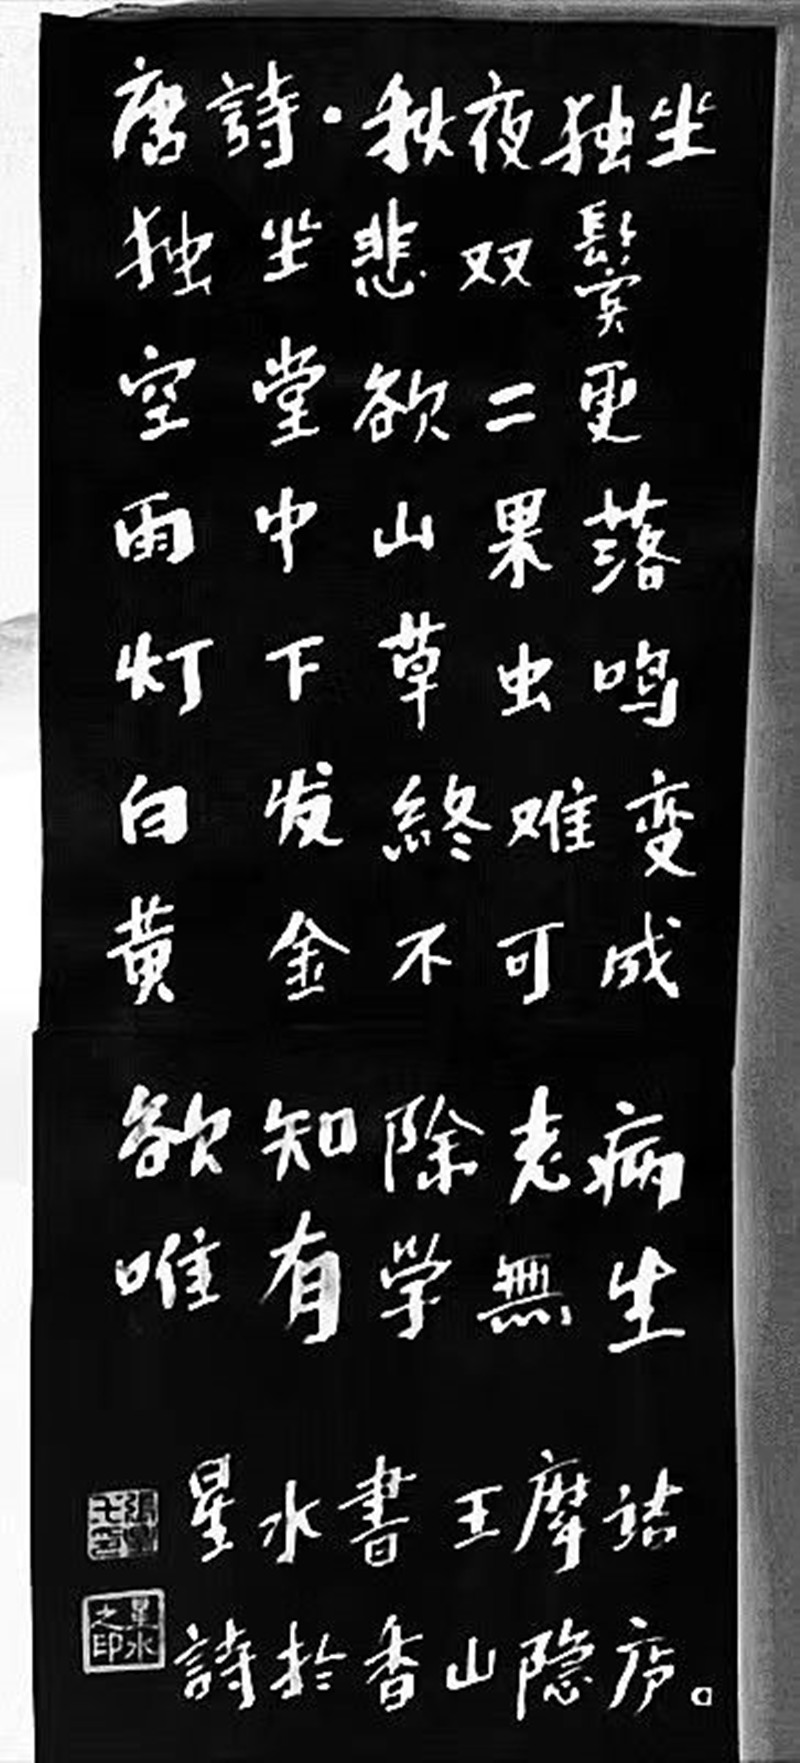 唐詩·秋夜独坐
独坐悲双鬓
空堂欲二更
雨中山果落
灯下草虫鸣
白发終难变
黄金不可成
欲知除老病
唯有学無生
星水書王摩诘
詩於香山隐庐。
星水之印